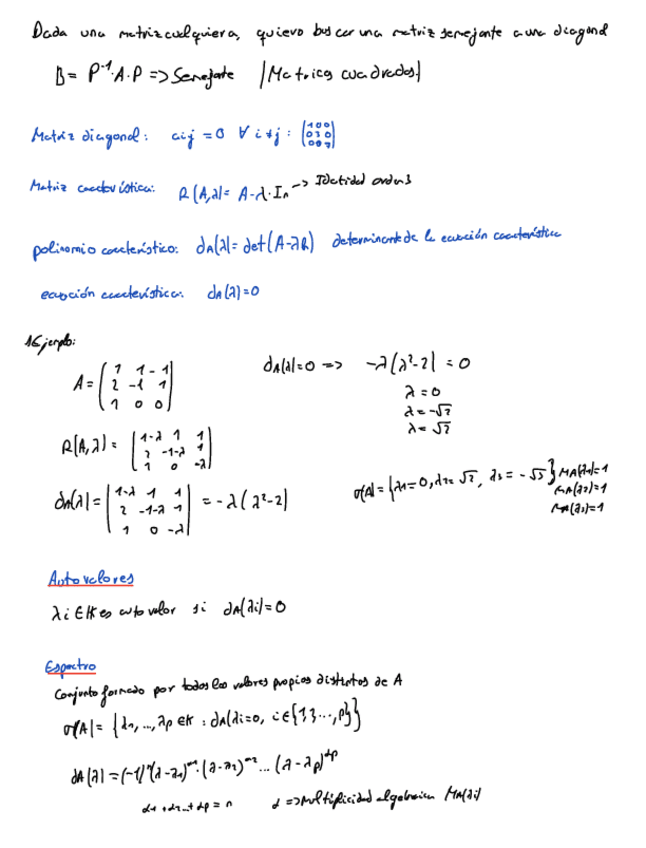 Dada una matriz cualquiera, quiero buscar una matriz semejante a una diagonal
B = P⁻¹·A·P => Semejante |Matrices cuadradas|
Matriz diagonal: aij = 0 ∀ i≠j : (1 0 0
0 3 0
0 0 7)
Matriz característica: R(A,λ) = A-λ·In -> Identidad orden 3
polinomio característico: dA(λ) = det(A-λR) determinante de la ecuación característica
ecuación característica: dA(λ)=0
Ejemplo:
A = (1 1 -1
2 -1 1
1 0 0)
dA(λ)=0 => -λ(λ²-2) = 0
λ = 0
λ = -√2
λ = √2
R(A,λ) = (1-λ 1 1
2 -1-λ 1
1 0 -λ)
dA(λ) = |1-λ 1 1
2 -1-λ 1
1 0 -λ| = -λ(λ²-2)
σ(A) = {λ1=0, λ2=√2, λ3=-√5} MA(λ1)=1
MA(λ2)=1
MA(λ3)=1
Autovalores
λi ∈ K es auto valor si dA(λi)=0
Espectro
Conjunto formado por todos los valores propios distintos de A
σ(A) = {λ1, ..., λp ∈ K : dA(λi=0, i∈{1, ..., p}}
dA(λ) = (-1)ⁿ(λ-λ1)·(λ-λ2) ... (λ-λp)ᵅᵖ
α1+α2..+αp = n α => Multiplicidad algebraica MA(λi)